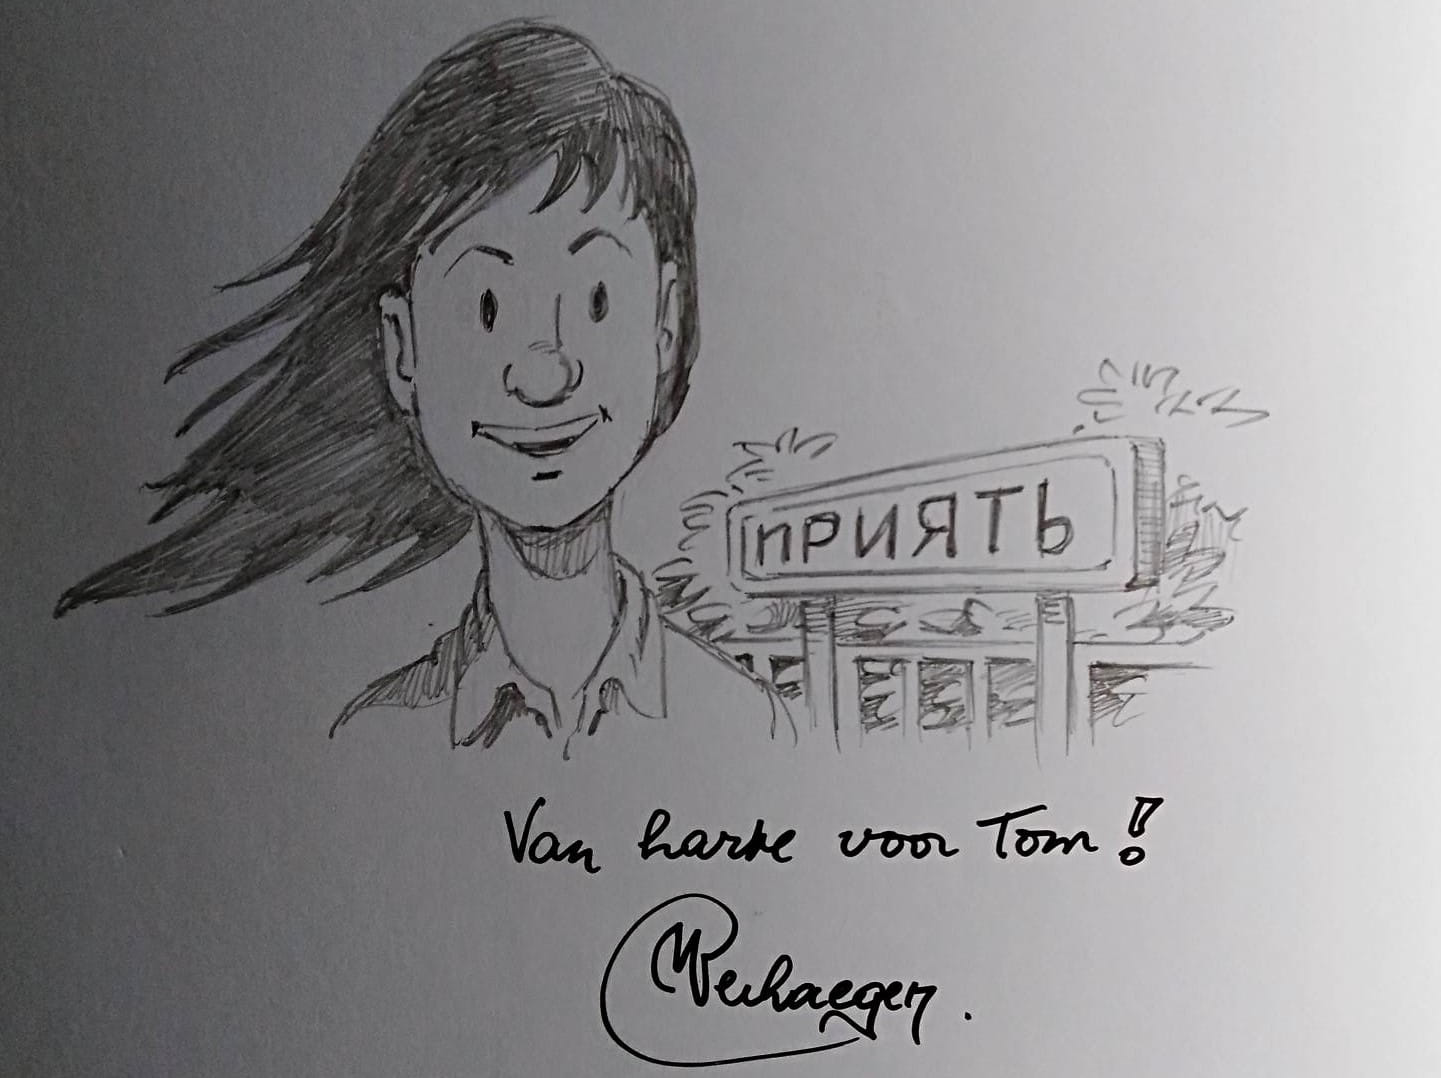 ПРИЯТЬ
Van harte voor Tom!
MVerhaegen.